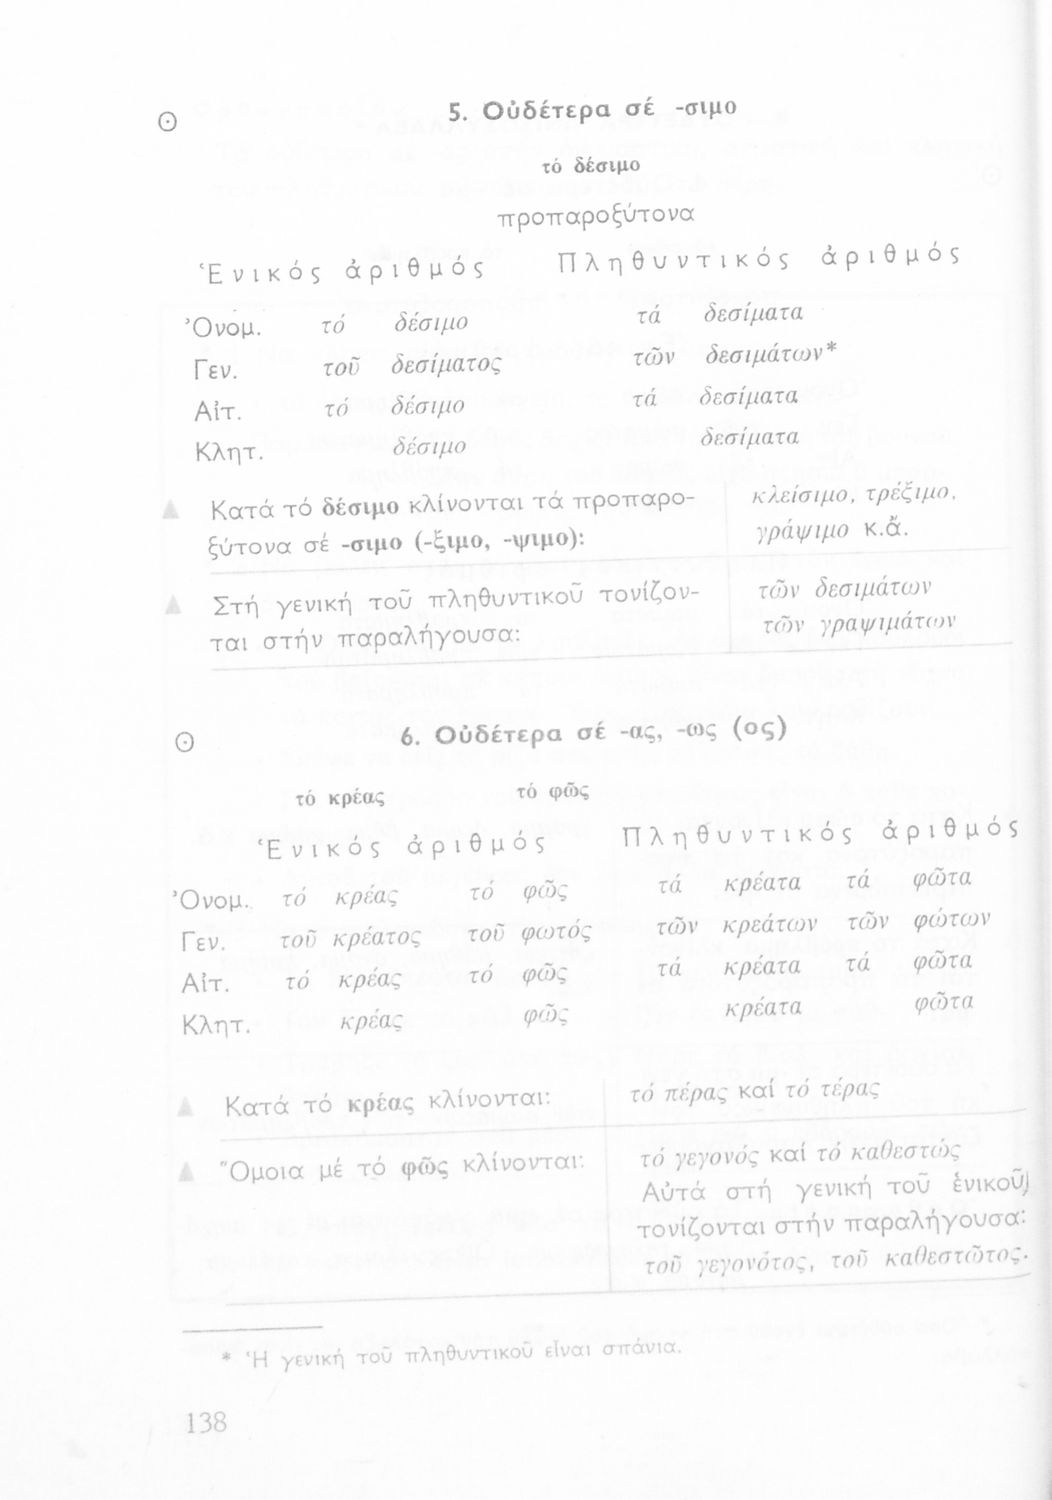 5. Οὐδέτερα σέ -σιμο
τό δέσιμο
προπαροξύτονα
Ἑνικός ἀριθμός Πληθυντικός ἀριθμός
Ὀνομ. τό δέσιμο τά δεσίματα
Γεν. τοῦ δεσίματος τῶν δεσιμάτων*
Αἰτ. τό δέσιμο τά δεσίματα
Κλητ. δέσιμο δεσίματα
Κατά τό δέσιμο κλίνονται τά προπαρο- κλείσιμο, τρέξιμο,
ξύτονα σέ -σιμο (-ξιμο, -ψιμο): γράψιμο κ.ἄ.
Στή γενική τοῦ πληθυντικοῦ τονίζον- τῶν δεσιμάτων
ται στήν παραλήγουσα: τῶν γραψιμάτων
6. Οὐδέτερα σέ -ας, -ως (ος)
τό κρέας τό φῶς
Ἑνικός ἀριθμός Πληθυντικός ἀριθμός
Ὀνομ. τό κρέας τό φῶς τά κρέατα τά φῶτα
Γεν. τοῦ κρέατος τοῦ φωτός τῶν κρεάτων τῶν φώτων
Αἰτ. τό κρέας τό φῶς τά κρέατα τά φῶτα
Κλητ. κρέας φῶς κρέατα φῶτα
Κατά τό κρέας κλίνονται: τό πέρας καί τό τέρας
Ὅμοια μέ τό φῶς κλίνονται: τό γεγονός καί τό καθεστώς
Αὐτά στή γενική τοῦ ἑνικοῦ
τονίζονται στήν παραλήγουσα:
τοῦ γεγονότος, τοῦ καθεστῶτος.
* Ἡ γενική τοῦ πληθυντικοῦ εἶναι σπάνια.
138